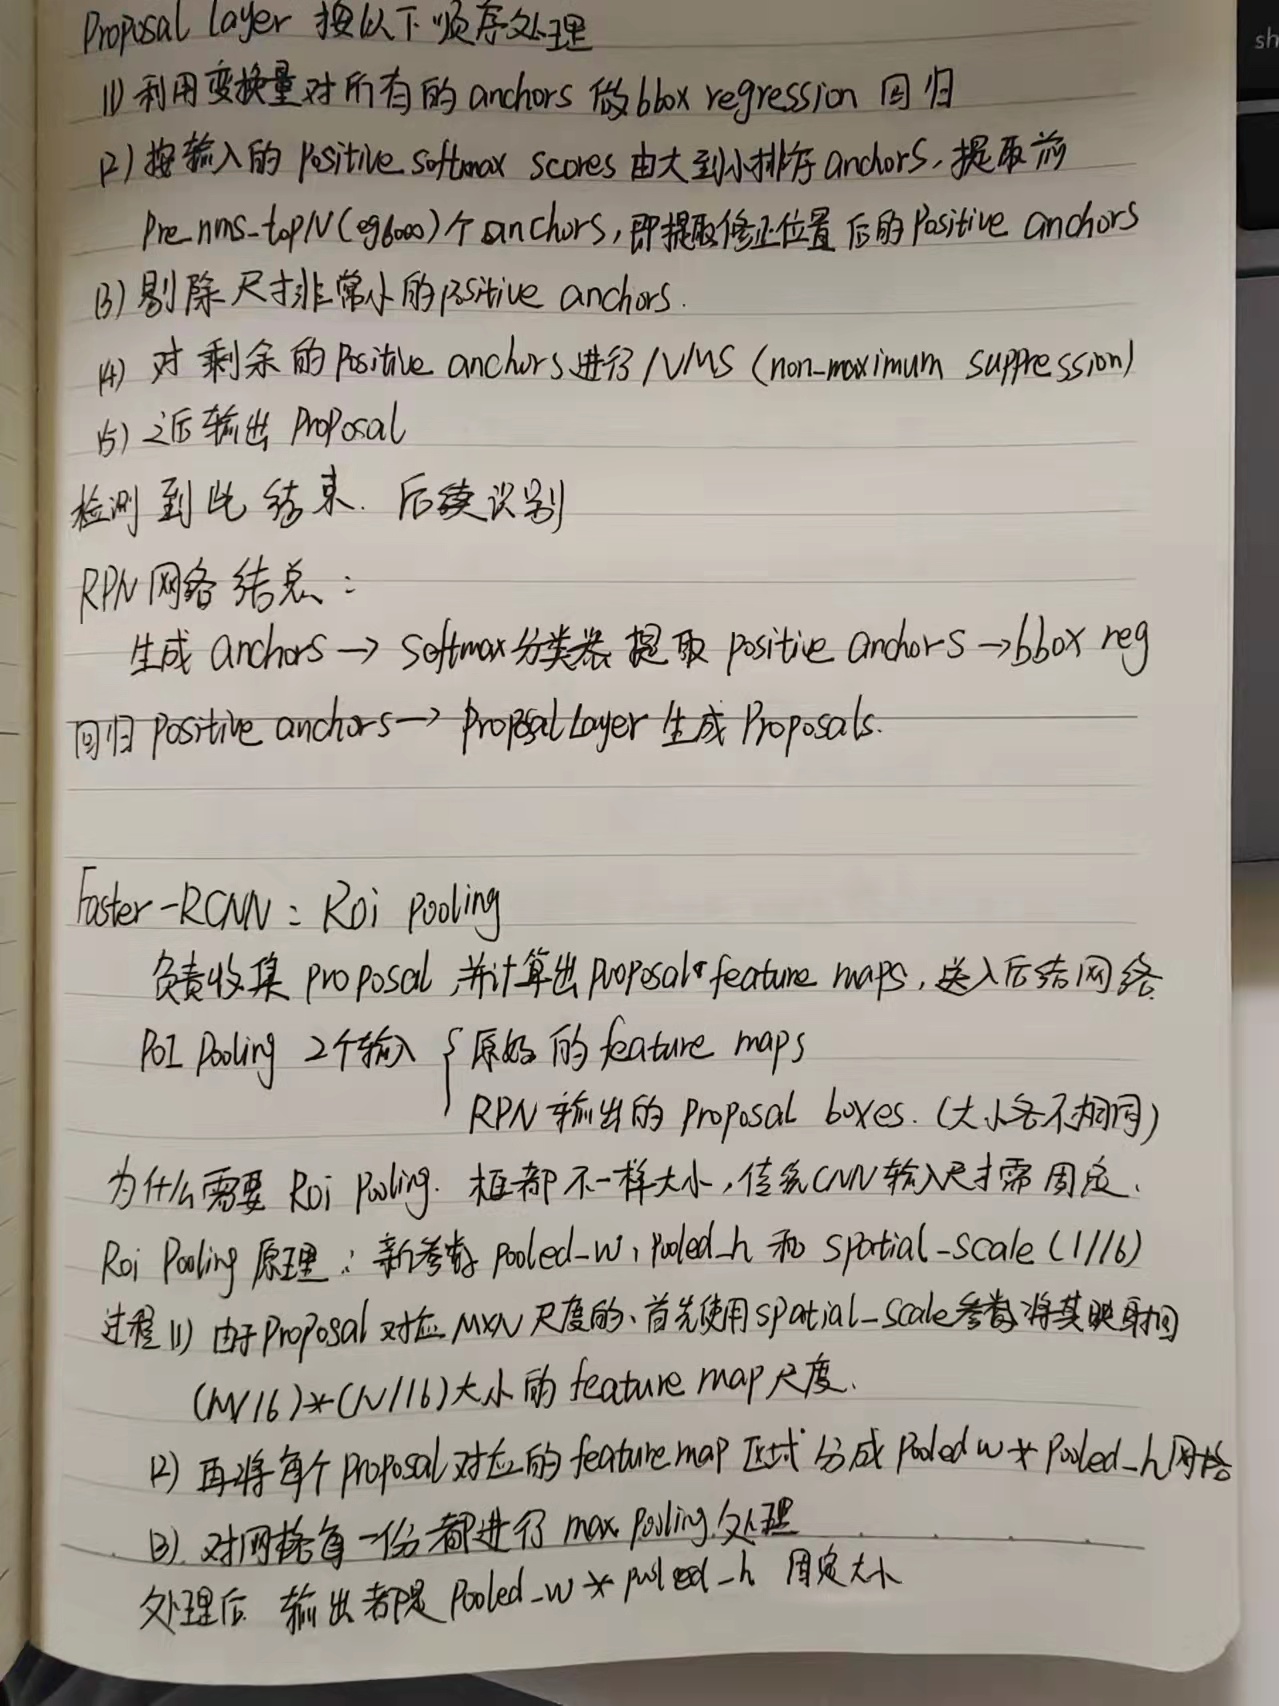 Proposal Layer 按以下顺序处理
(1) 利用变换量对所有的 anchors 做 bbox regression 回归
(2) 按输入的 positive softmax scores 由大到小排序 anchors, 提取前
Pre_nms_topN(eg6000)个 anchors, 即提取修正位置后的 Positive anchors
(3) 剔除尺寸非常小的 positive anchors.
(4) 对剩余的 Positive anchors 进行 NMS (non-maximum suppression)
(5) 之后输出 Proposal
检测到此结束. 后续识别
RPN 网络结总:
生成 anchors → softmax 分类器提取 positive anchors → bbox reg
回归 Positive anchors → Proposal Layer 生成 Proposals.
Faster-RCNN: Roi Pooling
负责收集 proposal, 并计算出 proposal feature maps, 送入后续网络
RoI Pooling 2个输入 { 原始的 feature maps
RPN 输出的 Proposal boxes. (大小各不相同)
为什么需要 Roi Pooling. 框都不一样大小, 传统CNN输入尺寸需固定.
Roi Pooling 原理: 新参数 pooled_w, pooled_h 和 spatial_scale (1/16)
过程 (1) 由于 Proposal 对应 MXN 尺度的、首先使用 spatial_scale 参数将其映射回
(M/16)*(N/16)大小的 feature map 尺度.
(2) 再将每个 proposal 对应的 feature map 区域分成 pooled w * Pooled_h 网格
(3). 对网格每一份都进行 max pooling 处理
处理后 输出都是 Pooled_w * pooled_h 固定大小
sh